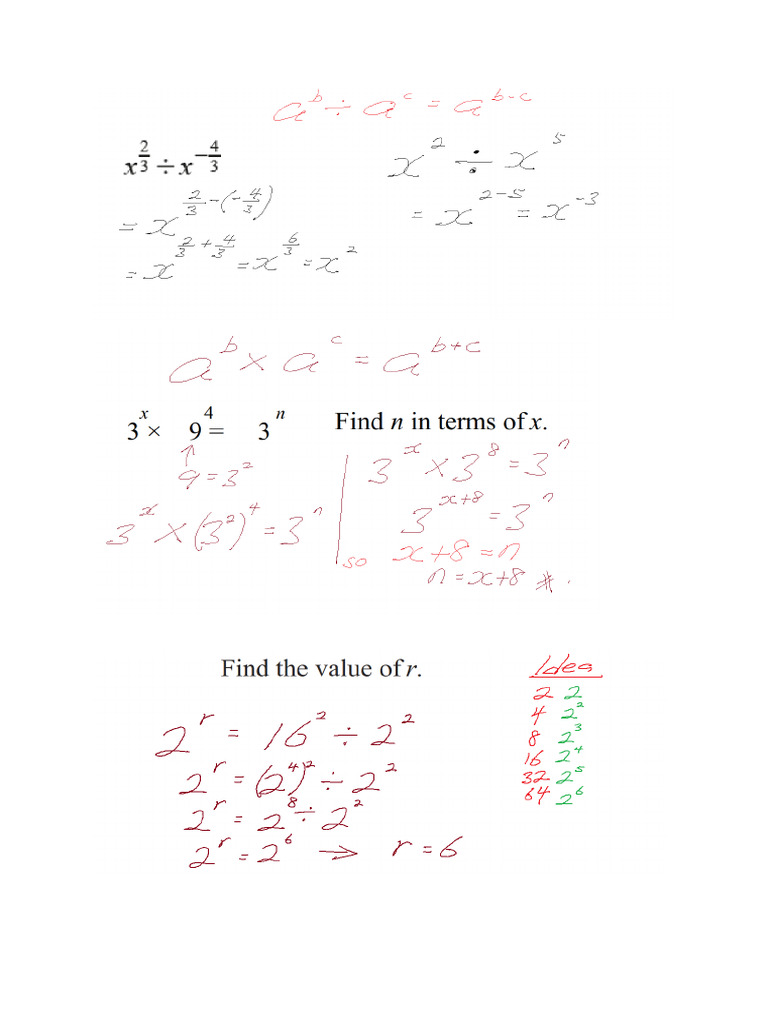 a^b ÷ a^c = a^(b-c)
x^(2/3) ÷ x^(-4/3)
x^2 ÷ x^5
= x^(2/3 - (-4/3))
= x^(2-5) = x^(-3)
= x^(2/3 + 4/3) = x^(6/3) = x^2
a^b × a^c = a^(b+c)
3^x × 9^4 = 3^n Find n in terms of x.
↑
9 = 3^2
3^x × (3^2)^4 = 3^n
3^x × 3^8 = 3^n
3^(x+8) = 3^n
so x+8 = n
n = x+8 *.
Find the value of r.
2^r = 16^2 ÷ 2^2
2^r = (2^4)^2 ÷ 2^2
2^r = 2^8 ÷ 2^2
2^r = 2^6 → r = 6
Idea
2 2
4 2^2
8 2^3
16 2^4
32 2^5
64 2^6